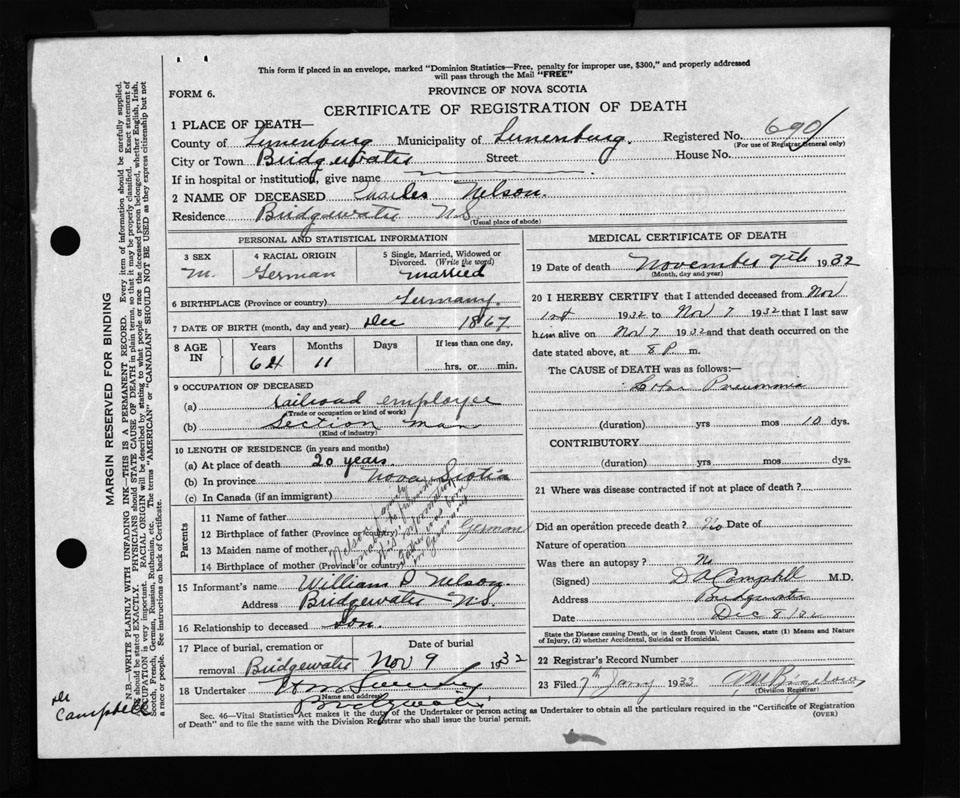 This form if placed in an envelope, marked "Dominion Statistics—Free, penalty for improper use, $300," and properly addressed
will pass through the Mail "FREE"
FORM 6.
PROVINCE OF NOVA SCOTIA
CERTIFICATE OF REGISTRATION OF DEATH
1 PLACE OF DEATH—
County of Lunenburg Municipality of Lunenburg. Registered No. 690
(For use of Registrar General only)
City or Town Bridgewater Street House No.
If in hospital or institution, give name
2 NAME OF DECEASED Charles Nelson.
Residence Bridgewater N.S.
(Usual place of abode)
PERSONAL AND STATISTICAL INFORMATION
3 SEX 4 RACIAL ORIGIN 5 Single, Married, Widowed or
Divorced. (Write the word)
M. German married
6 BIRTHPLACE (Province or country) Germany.
7 DATE OF BIRTH (month, day and year) Dec 1867
8 AGE IN Years Months Days If less than one day,
64 11 hrs. or min.
9 OCCUPATION OF DECEASED
(a) railroad employee
(Trade or occupation or kind of work)
(b) section man
(Kind of industry)
10 LENGTH OF RESIDENCE (in years and months)
(a) At place of death 20 years
(b) In province Nova Scotia
(c) In Canada (if an immigrant)
Parents
11 Name of father
12 Birthplace of father (Province or country) German
13 Maiden name of mother
14 Birthplace of mother (Province or country)
Nelson family
unable to furnish
any information
Father was born
in Germany
15 Informant's name William P Nelson.
Address Bridgewater N.S.
16 Relationship to deceased son.
17 Place of burial, cremation or Date of burial
removal Bridgewater Nov 9 1932
18 Undertaker
(Name and address)
Bridgewater
MEDICAL CERTIFICATE OF DEATH
19 Date of death November 7th 1932
(Month, day and year)
20 I HEREBY CERTIFY that I attended deceased from Nov
1st 1932 to Nov 7 1932 that I last saw
him alive on Nov 7 1932 and that death occurred on
date stated above, at 8 P. m.
The CAUSE of DEATH was as follows:—
Lobar Pneumonia
(duration) yrs mos 10 dys.
CONTRIBUTORY
(duration) yrs mos dys.
21 Where was disease contracted if not at place of death?
Did an operation precede death? No Date of
Nature of operation
Was there an autopsy? No
(Signed) D A Campbell M.D.
Address Bridgewater
Date Dec 8/32
State the Disease causing Death, or in death from Violent Causes, state (1) Means and Nature
of Injury, (2) whether Accidental, Suicidal or Homicidal.
22 Registrar's Record Number
23 Filed 7th Jany 1933
(Division Registrar)
Sec. 46—Vital Statistics Act makes it the duty of the Undertaker or person acting as Undertaker to obtain all the particulars required in the "Certificate of Registration
of Death" and to file the same with the Division Registrar who shall issue the burial permit.
(OVER)
MARGIN RESERVED FOR BINDING
N.B.—WRITE PLAINLY WITH UNFADING INK—THIS IS A PERMANENT RECORD. Every item of information should be carefully supplied.
AGE should be stated EXACTLY. PHYSICIANS should STATE CAUSE OF DEATH in plain terms, so that it may be properly classified. Exact statement of
OCCUPATION is very important. RACIAL ORIGIN will be described by stating to what people or race the deceased person belonged, whether English, Irish,
Scotch, French, German, Russian, Ruthenian, etc. The terms "AMERICAN" or "CANADIAN" SHOULD NOT BE USED as they express citizenship but not
a race or people. See instructions on back of Certificate.
Dr
Campbell